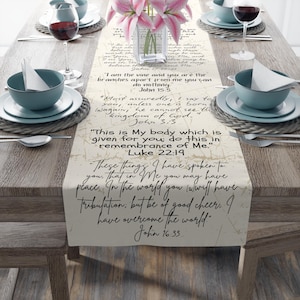 "I am the vine and you are the
branches apart from me you can
do nothing.
John 15:5
Most assuredly, I say to
you, unless one is born
again, he cannot see the
kingdom of God.
John 3:3
"This is My body which is
given for you; do this in
remembrance of Me."
Luke 22:19
"These things I have spoken to
you, that in Me you may have
peace. In the world you will have
tribulation; but be of good cheer, I
have overcome the world."
John 16:33